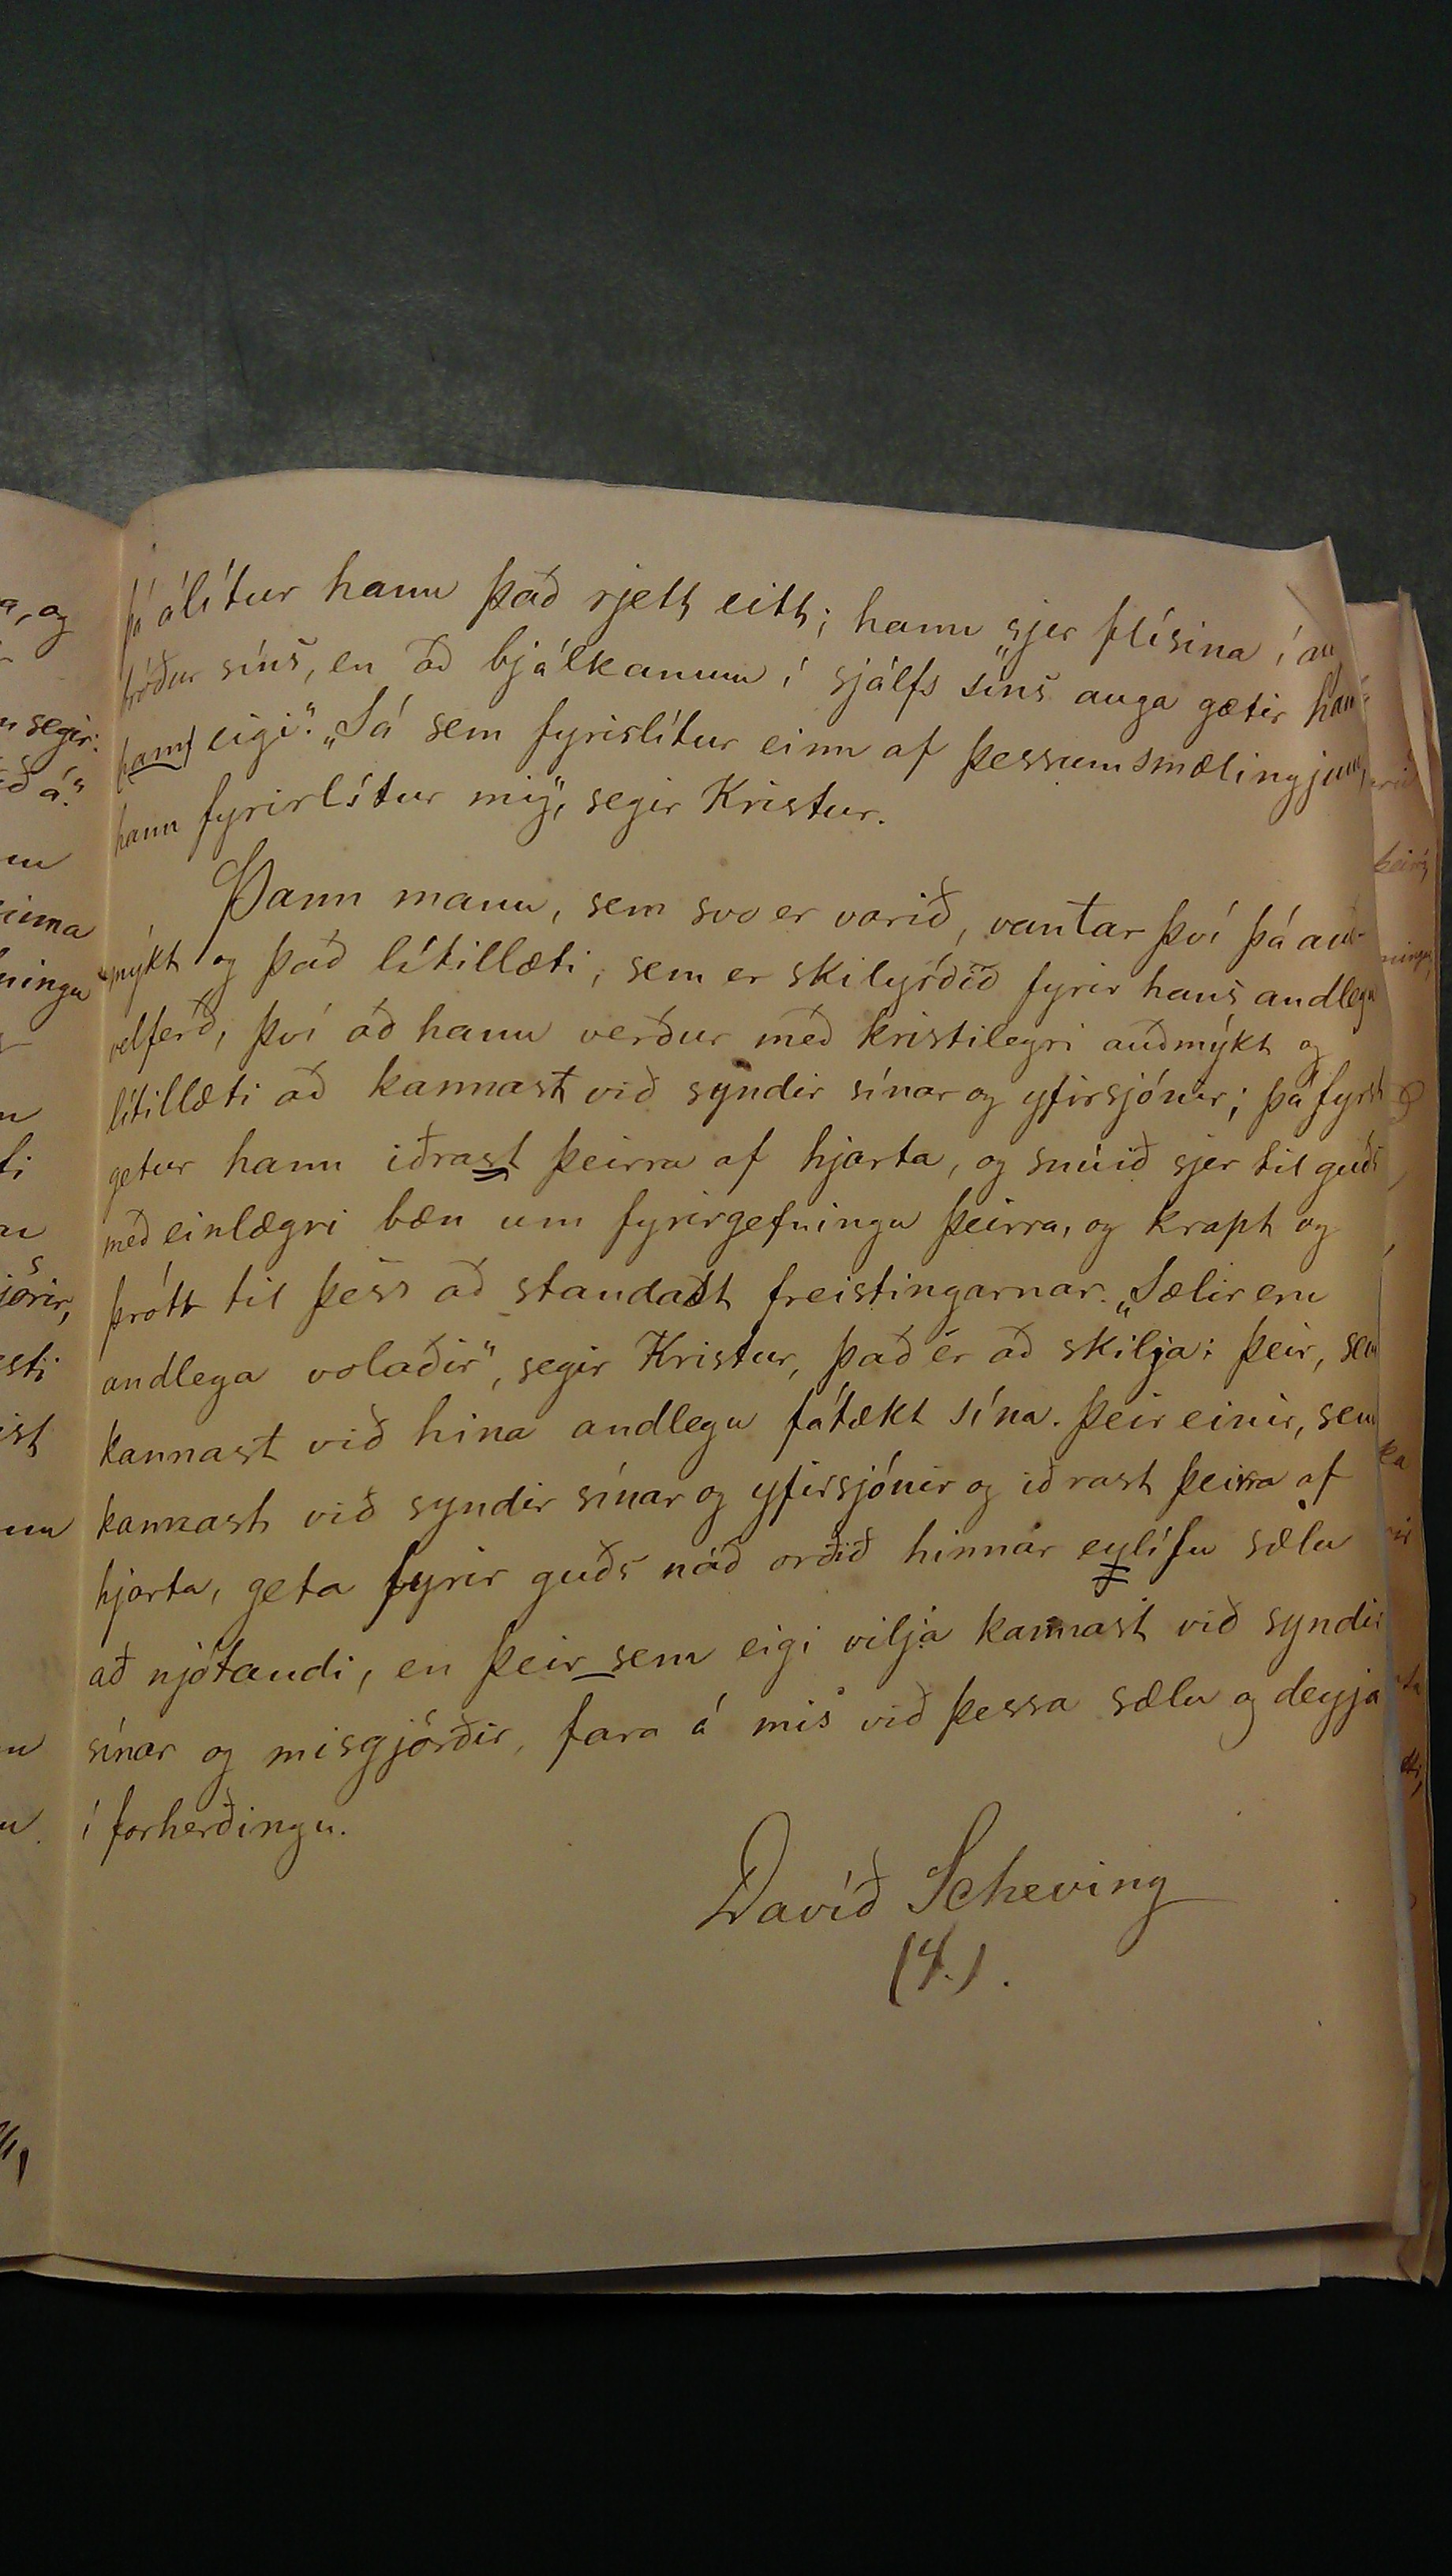 þá álítur hann það rjett eitt; hann „sjer flísina í au
bróður síns, en að bjálkanum í sjálfs síns auga gætir hann
hann eigi". „Sá sem fyrirlítur einn af þessum smælingjum,
hann fyrirlítur mig", segir Kristur.
Þann mann, sem svo er varið, vantar því þá auð-
mýkt og það lítillæti, sem er skilyrðið fyrir hans andlegu
velferð, því að hann verður með kristilegri auðmýkt og
lítillæti að kannast við syndir sínar og yfirsjónir; þá fyrst
getur hann iðrast þeirra af hjarta, og snúið sjer til guðs
með einlægri bæn um fyrirgefningu þeirra, og krapt og
þrótt til þess að standast freistingarnar. „Sælir eru
andlega volaðir", segir Kristur, það er að skilja: þeir, sem
kannast við hina andlegu fátækt sína. Þeir einir, sem
kannast við syndir sínar og yfirsjónir og iðrast þeirra af
hjarta, geta fyrir guðs náð orðið hinnar eylífu sælu
að njótandi, en þeir sem eigi vilja kannast við syndir
sínar og misgjörðir, fara á mis við þessa sælu og deyja
í forherðingu.
Davíð Scheving
(4.).